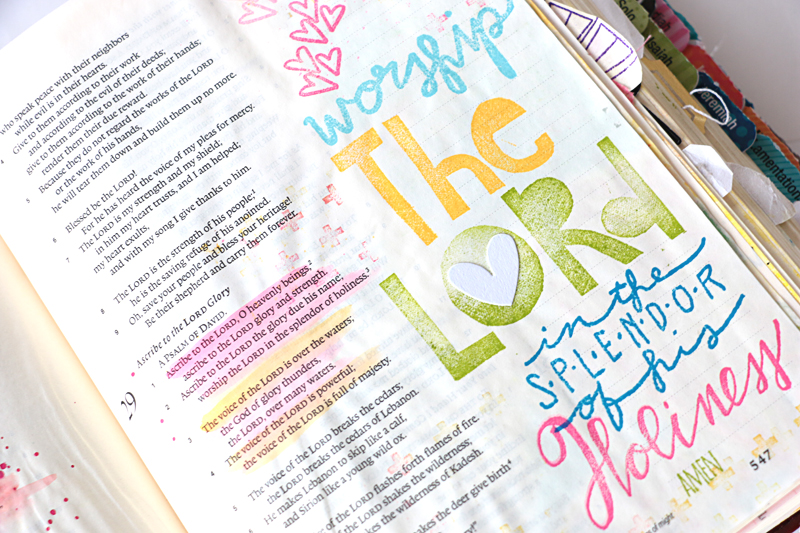 who speak peace with their neighbors
while evil is in their hearts.
4 Give to them according to their work
and according to the evil of their deeds;
give to them according to the work of their hands;
render them their due reward.
5 Because they do not regard the works of the LORD
or the work of his hands,
he will tear them down and build them up no more.
6 Blessed be the LORD!
For he has heard the voice of my pleas for mercy.
7 The LORD is my strength and my shield;
in him my heart trusts, and I am helped;
my heart exults,
and with my song I give thanks to him.
8 The LORD is the strength of his people;¹
he is the saving refuge of his anointed.
9 Oh, save your people and bless your heritage!
Be their shepherd and carry them forever.
Ascribe to the LORD Glory
29 A PSALM OF DAVID.
1 Ascribe to the LORD, O heavenly beings,²
ascribe to the LORD glory and strength.
2 Ascribe to the LORD the glory due his name;
worship the LORD in the splendor of holiness.³
3 The voice of the LORD is over the waters;
the God of glory thunders,
the LORD, over many waters.
4 The voice of the LORD is powerful;
the voice of the LORD is full of majesty.
5 The voice of the LORD breaks the cedars;
the LORD breaks the cedars of Lebanon.
6 He makes Lebanon to skip like a calf,
and Sirion like a young wild ox.
of the LORD flashes forth flames of fire.
of the LORD shakes the wilderness;
the wilderness of Kadesh.
makes the deer give birth⁴
worship
The
LORD
in the
S·P·L·E·N·D·O·R
of his
Holiness
AMEN
547
of might
Isaiah
Jeremiah
Lamentations